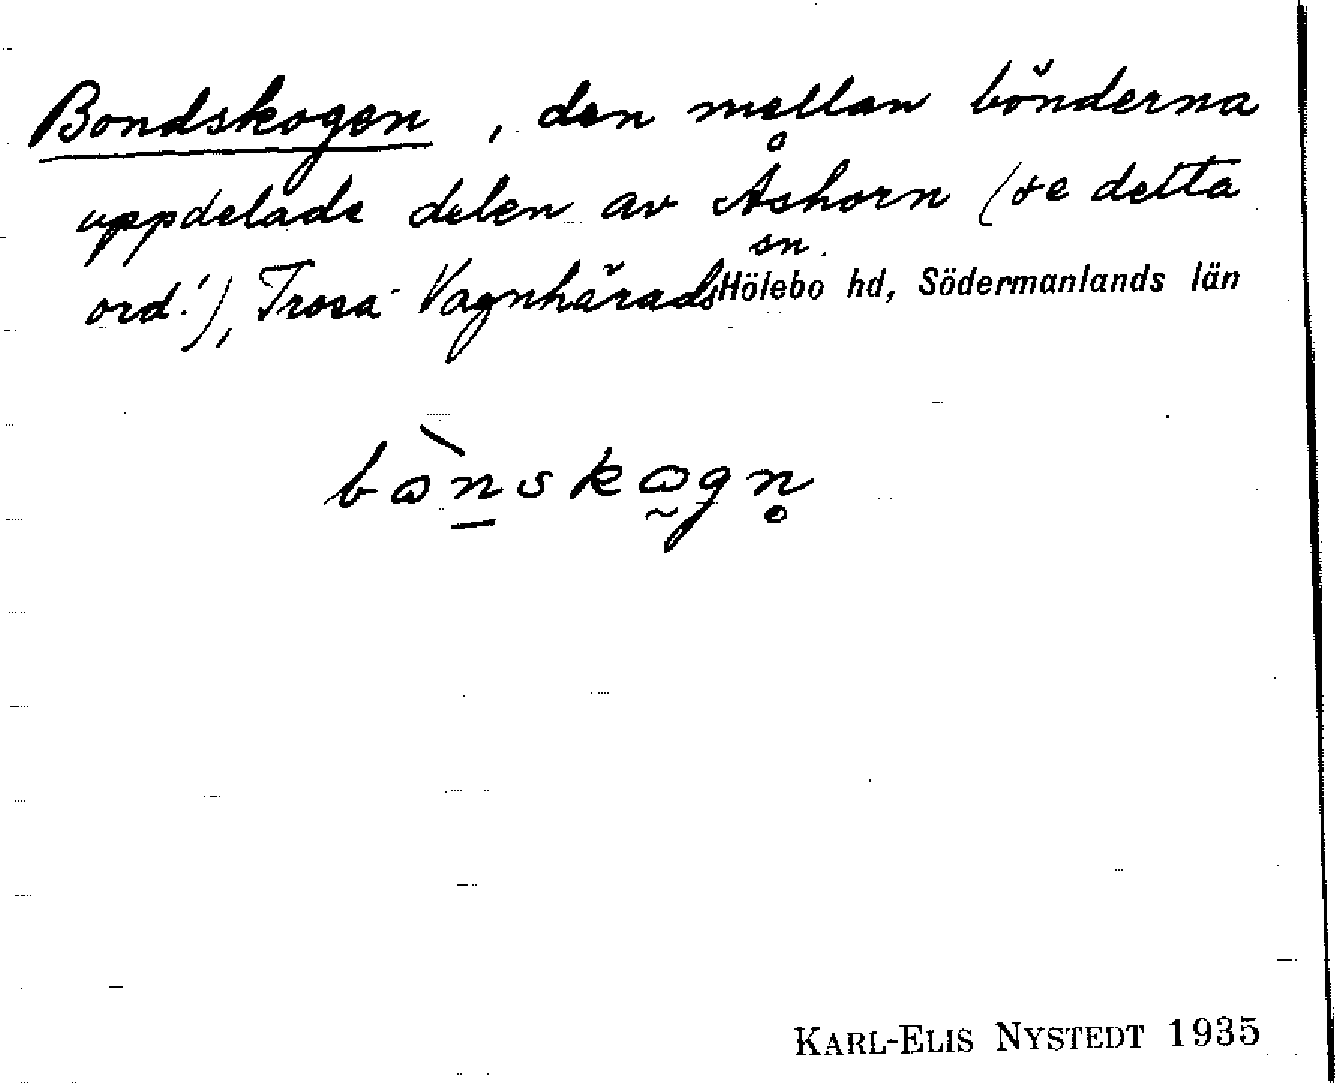 Bondskogen, den mellan bönderna
uppdelade delen av Åshorn (se detta
ord!), Trosa-Vagnhärads sn. Hölebo hd, Södermanlands län
bὼnskωgn̥
KARL-ELIS NYSTEDT 1935